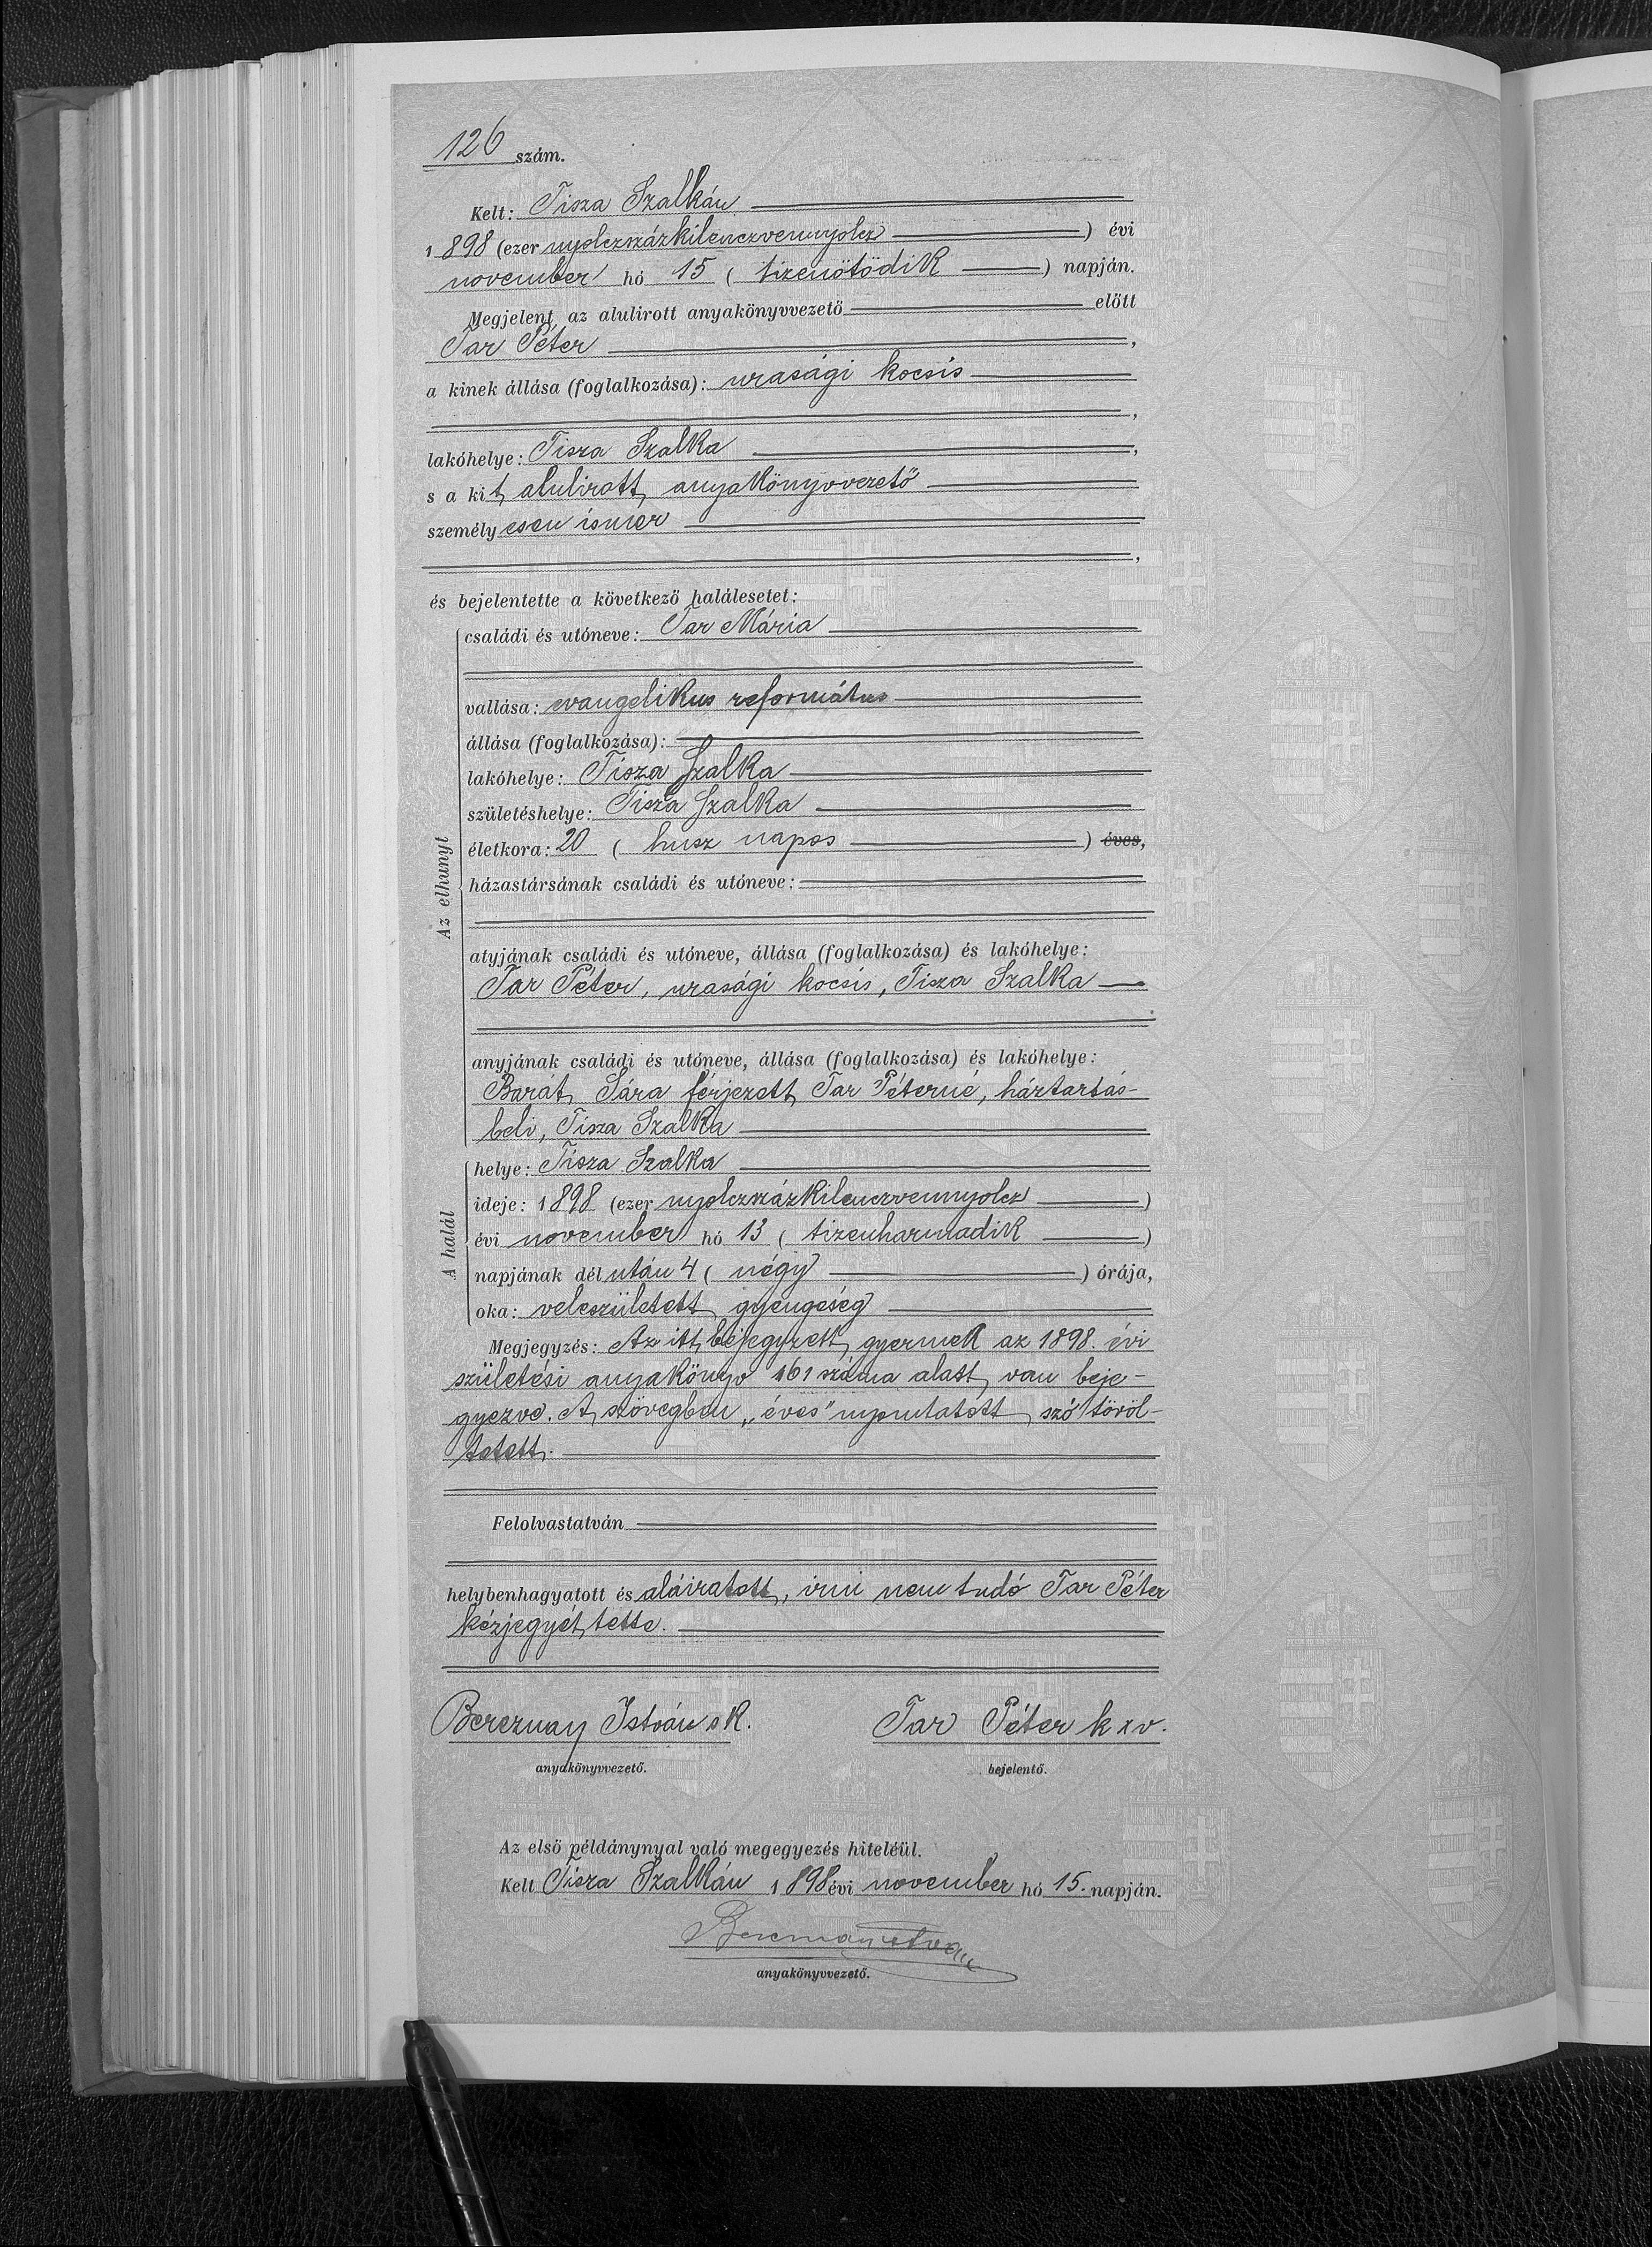 126 szám.
Kelt: Tisza Szalkán
1898 (ezer nyolczszázkilenczvennyolcz) évi
november hó 15 (tizenötödik) napján.
Megjelent az alulirott anyakönyvvezető előtt
Tar Péter,
a kinek állása (foglalkozása): urasági kocsis
,
lakóhelye: Tisza Szalka,
s a kit alulirott anyakönyvvezető
személyesen ismer
,
és bejelentette a következő halálesetet:
Az elhunyt
családi és utóneve: Tar Mária
vallása: evangelikus református
állása (foglalkozása):
lakóhelye: Tisza Szalka
születéshelye: Tisza Szalka
életkora: 20 (husz napos) éves,
házastársának családi és utóneve:
atyjának családi és utóneve, állása (foglalkozása) és lakóhelye:
Tar Péter, urasági kocsis, Tisza Szalka
anyjának családi és utóneve, állása (foglalkozása) és lakóhelye:
Barát Sára férjezett Tar Péterné, háztartás-
beli, Tisza Szalka
A halál
helye: Tisza Szalka
ideje: 1898 (ezer nyolczszázkilenczvennyolcz)
évi november hó 13 (tizenharmadik)
napjának délután 4 (négy) órája,
oka: veleszületett gyengeség
Megjegyzés: Az itt bejegyzett gyermek az 1898. évi
születési anyakönyv 161 száma alatt van beje-
gyezve. A szövegben „éves" nyomtatott szó töröl-
tetett.
Felolvastatván
helybenhagyatott és aláiratott, irni nem tudó Tar Péter
kézjegyét tette.
Bereznay István sk. Tar Péter k x v.
anyakönyvvezető. bejelentő.
Az első példánynyal való megegyezés hiteléül.
Kelt Tisza Szalkán 1898 évi november hó 15. napján.
Bereznay István
anyakönyvvezető.